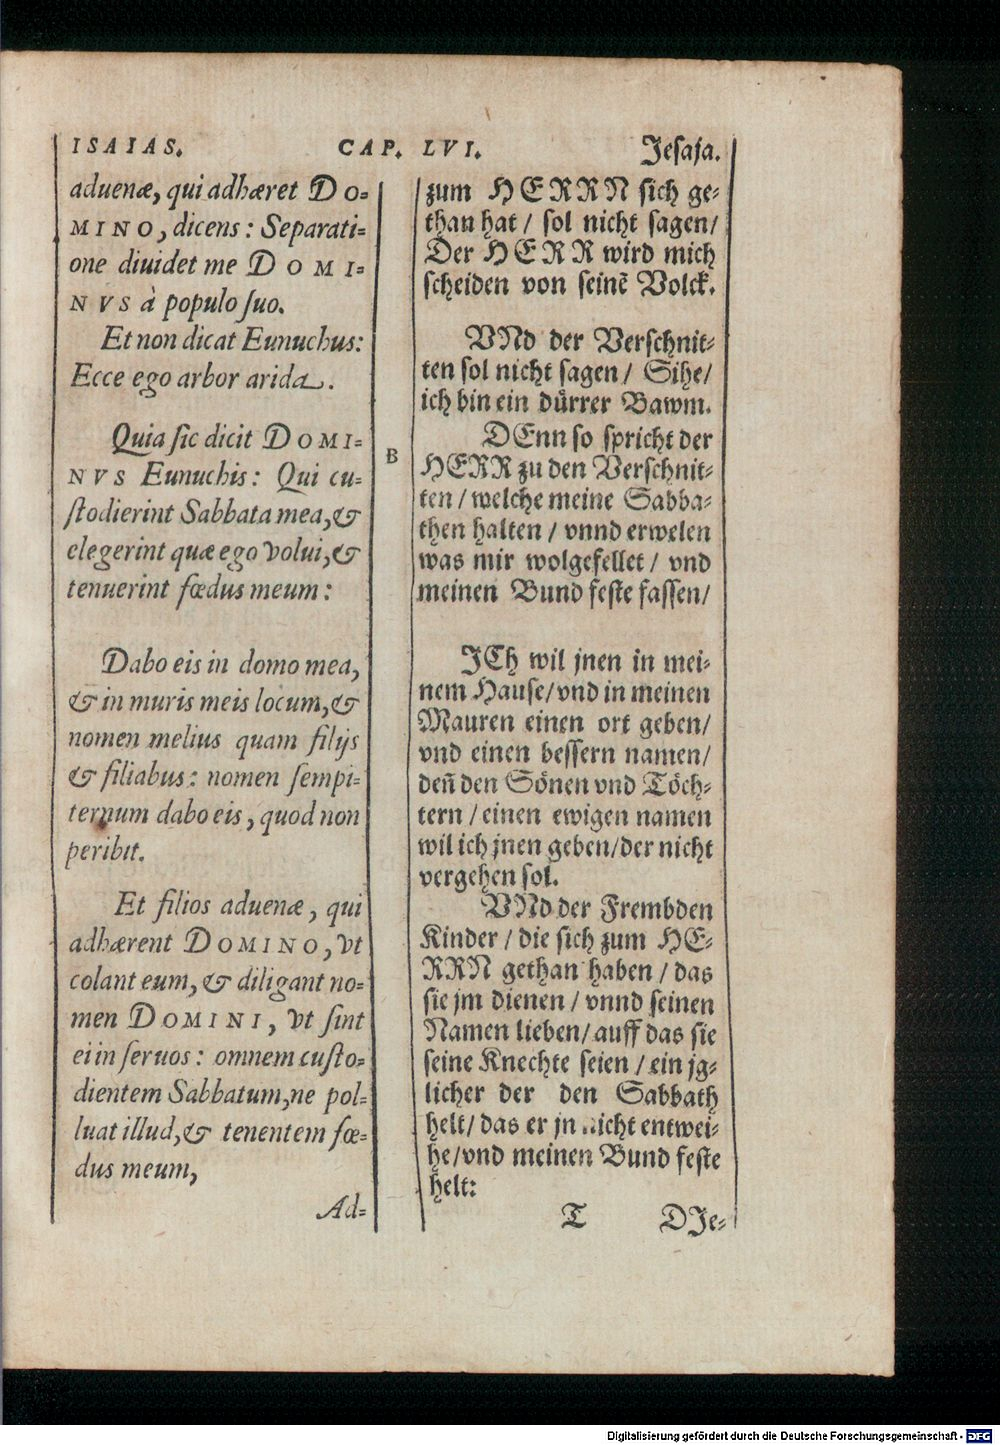 ISAIAS. CAP. LVI. Jesaja.
aduenæ, qui adhæret DO-
MINO, dicens: Separati-
one diuidet me DOMI-
NVS à populo suo.
Et non dicat Eunuchus:
Ecce ego arbor arida.
Quia sic dicit DOMI-
NVS Eunuchis: Qui cu-
stodierint Sabbata mea, &
elegerint quæ ego volui, &
tenuerint fœdus meum:
Dabo eis in domo mea,
& in muris meis locum, &
nomen melius quam filijs
& filiabus: nomen sempi-
ternum dabo eis, quod non
peribit.
Et filios aduenæ, qui
adhærent DOMINO, vt
colant eum, & diligant no-
men DOMINI, vt sint
ei in seruos: omnem custo-
dientem Sabbatum, ne pol-
luat illud, & tenentem fœ-
dus meum,
Ad-
B
zum HERRN sich ge-
than hat / sol nicht sagen/
Der HERR wird mich
scheiden von seinē Volck.
VNd der Verschnit-
ten sol nicht sagen / Sihe/
ich bin ein dürrer Bawm.
DEnn so spricht der
HERR zu den Verschnit-
ten / welche meine Sabba-
then halten / vnnd erwelen
was mir wolgefellet / vnd
meinen Bund feste fassen/
JCh wil jnen in mei-
nem Hause/vnd in meinen
Mauren einen ort geben/
vnd einen bessern namen/
deñ den Sönen vnd Töch-
tern / einen ewigen namen
wil ich jnen geben/der nicht
vergehen sol.
VNd der Frembden
Kinder / die sich zum HE-
RRN gethan haben / das
sie jm dienen / vnnd seinen
Namen lieben/ auff das sie
seine Knechte seien / ein jg-
licher der den Sabbath
helt/ das er jn nicht entwei-
he/vnd meinen Bund feste
helt:
T DJe-
Digitalisierung gefördert durch die Deutsche Forschungsgemeinschaft - DFG